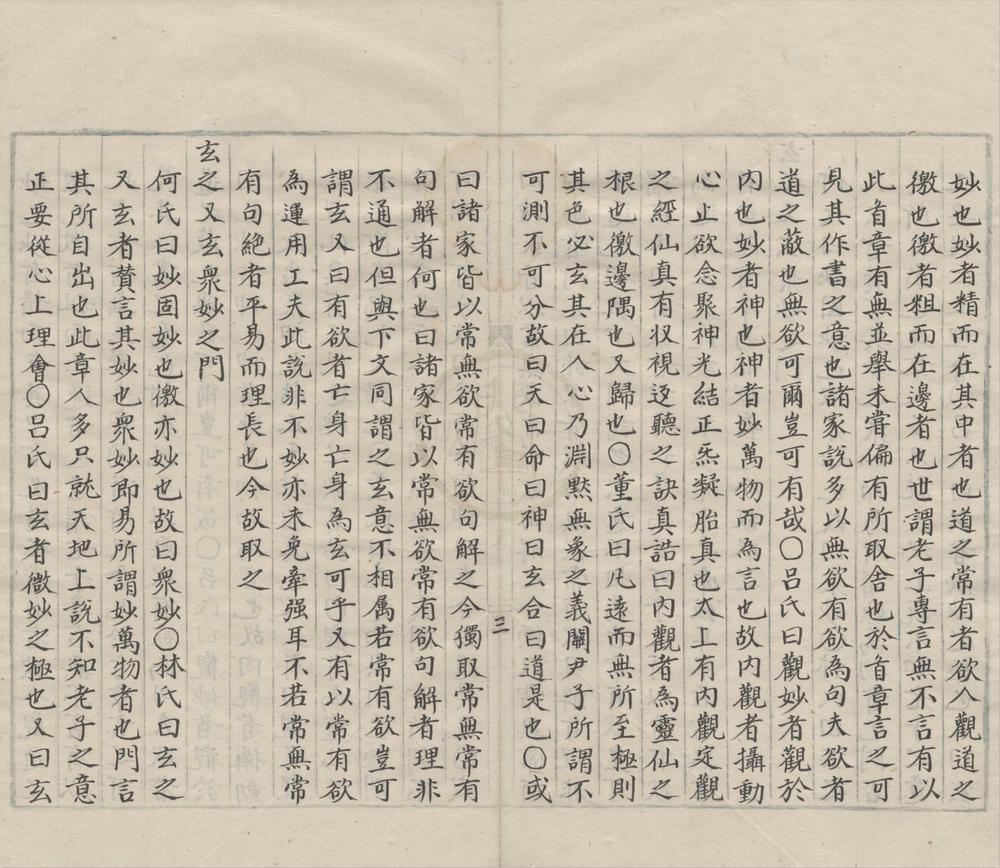 妙也妙者精而在其中者也道之常有者欲人觀道之
徼也徼者粗而在邊者也世謂老子專言無不言有以
此首章有無並舉未嘗偏有所取舍也於首章言之可
見其作書之意也諸家說多以無欲有欲為句夫欲者
道之蔽也無欲可爾豈可有哉〇呂氏曰觀妙者觀於
內也妙者神也神者妙萬物而為言也故內觀者攝動
心止欲念聚神光結正炁凝胎真也太上有內觀定觀
之經仙真有収視返聽之訣真誥曰內觀者為靈仙之
根也徼邊隅也又歸也〇董氏曰凡遠而無所至極則
其色必玄其在人心乃淵默無象之義關尹子所謂不
可測不可分故曰天曰命曰神曰玄合曰道是也〇或
三
曰諸家皆以常無欲常有欲句解之今獨取常無常有
句解者何也曰諸家皆以常無欲常有欲句解者理非
不通也但與下文同謂之玄意不相属若常有欲豈可
謂玄又曰有欲者亡身亡身為玄可乎又有以常有欲
為運用工夫此說非不妙亦未免牽强耳不若常無常
有句絕者平易而理長也今故取之
玄之又玄衆妙之門
何氏曰妙固妙也徼亦妙也故曰衆妙〇林氏曰玄之
又玄者賛言其妙也衆妙即易所謂妙萬物者也門言
其所自出也此章人多只就天地上說不知老子之意
正要從心上理會〇呂氏曰玄者微妙之極也又曰玄